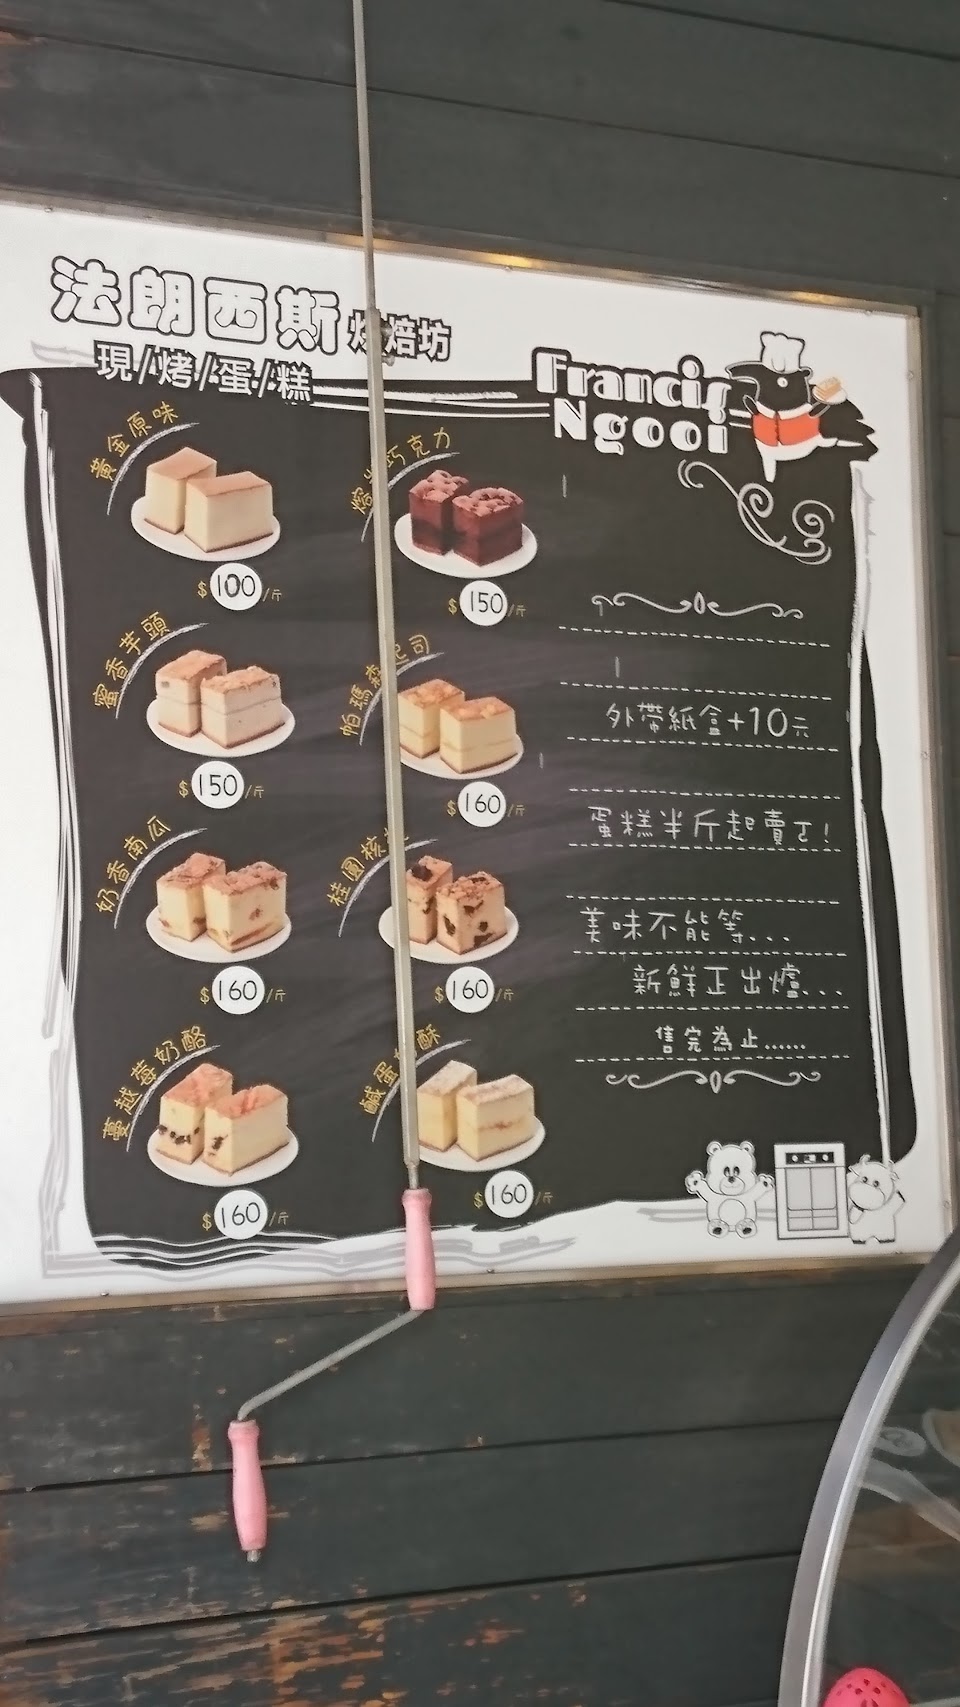 法朗西斯 焙坊
現/烤/蛋/糕
Francis
Ngooi
黃金原味
$100/斤
巧克力
$150/斤
蜜香芋頭
$150/斤
帕瑪森起司
$160/斤
奶香南瓜
$160/斤
桂圓核
$160/斤
蔓越莓奶酪
$160/斤
鹹蛋 酥
$160/斤
外帶紙盒+10元
蛋糕半斤起賣了!
美味不能等...
新鮮正出爐...
售完為止......